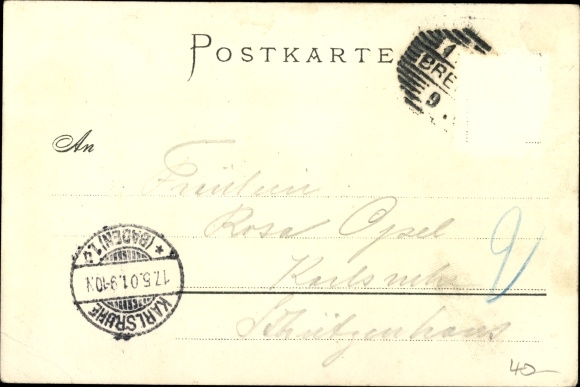 POSTKARTE
1
BRE
9
An
Fräulein
Rosa Opel
Karlsruhe
Schützenhaus
9
KARLSRUHE
17.5.01.9-10N
* (BADEN) 1.
40-